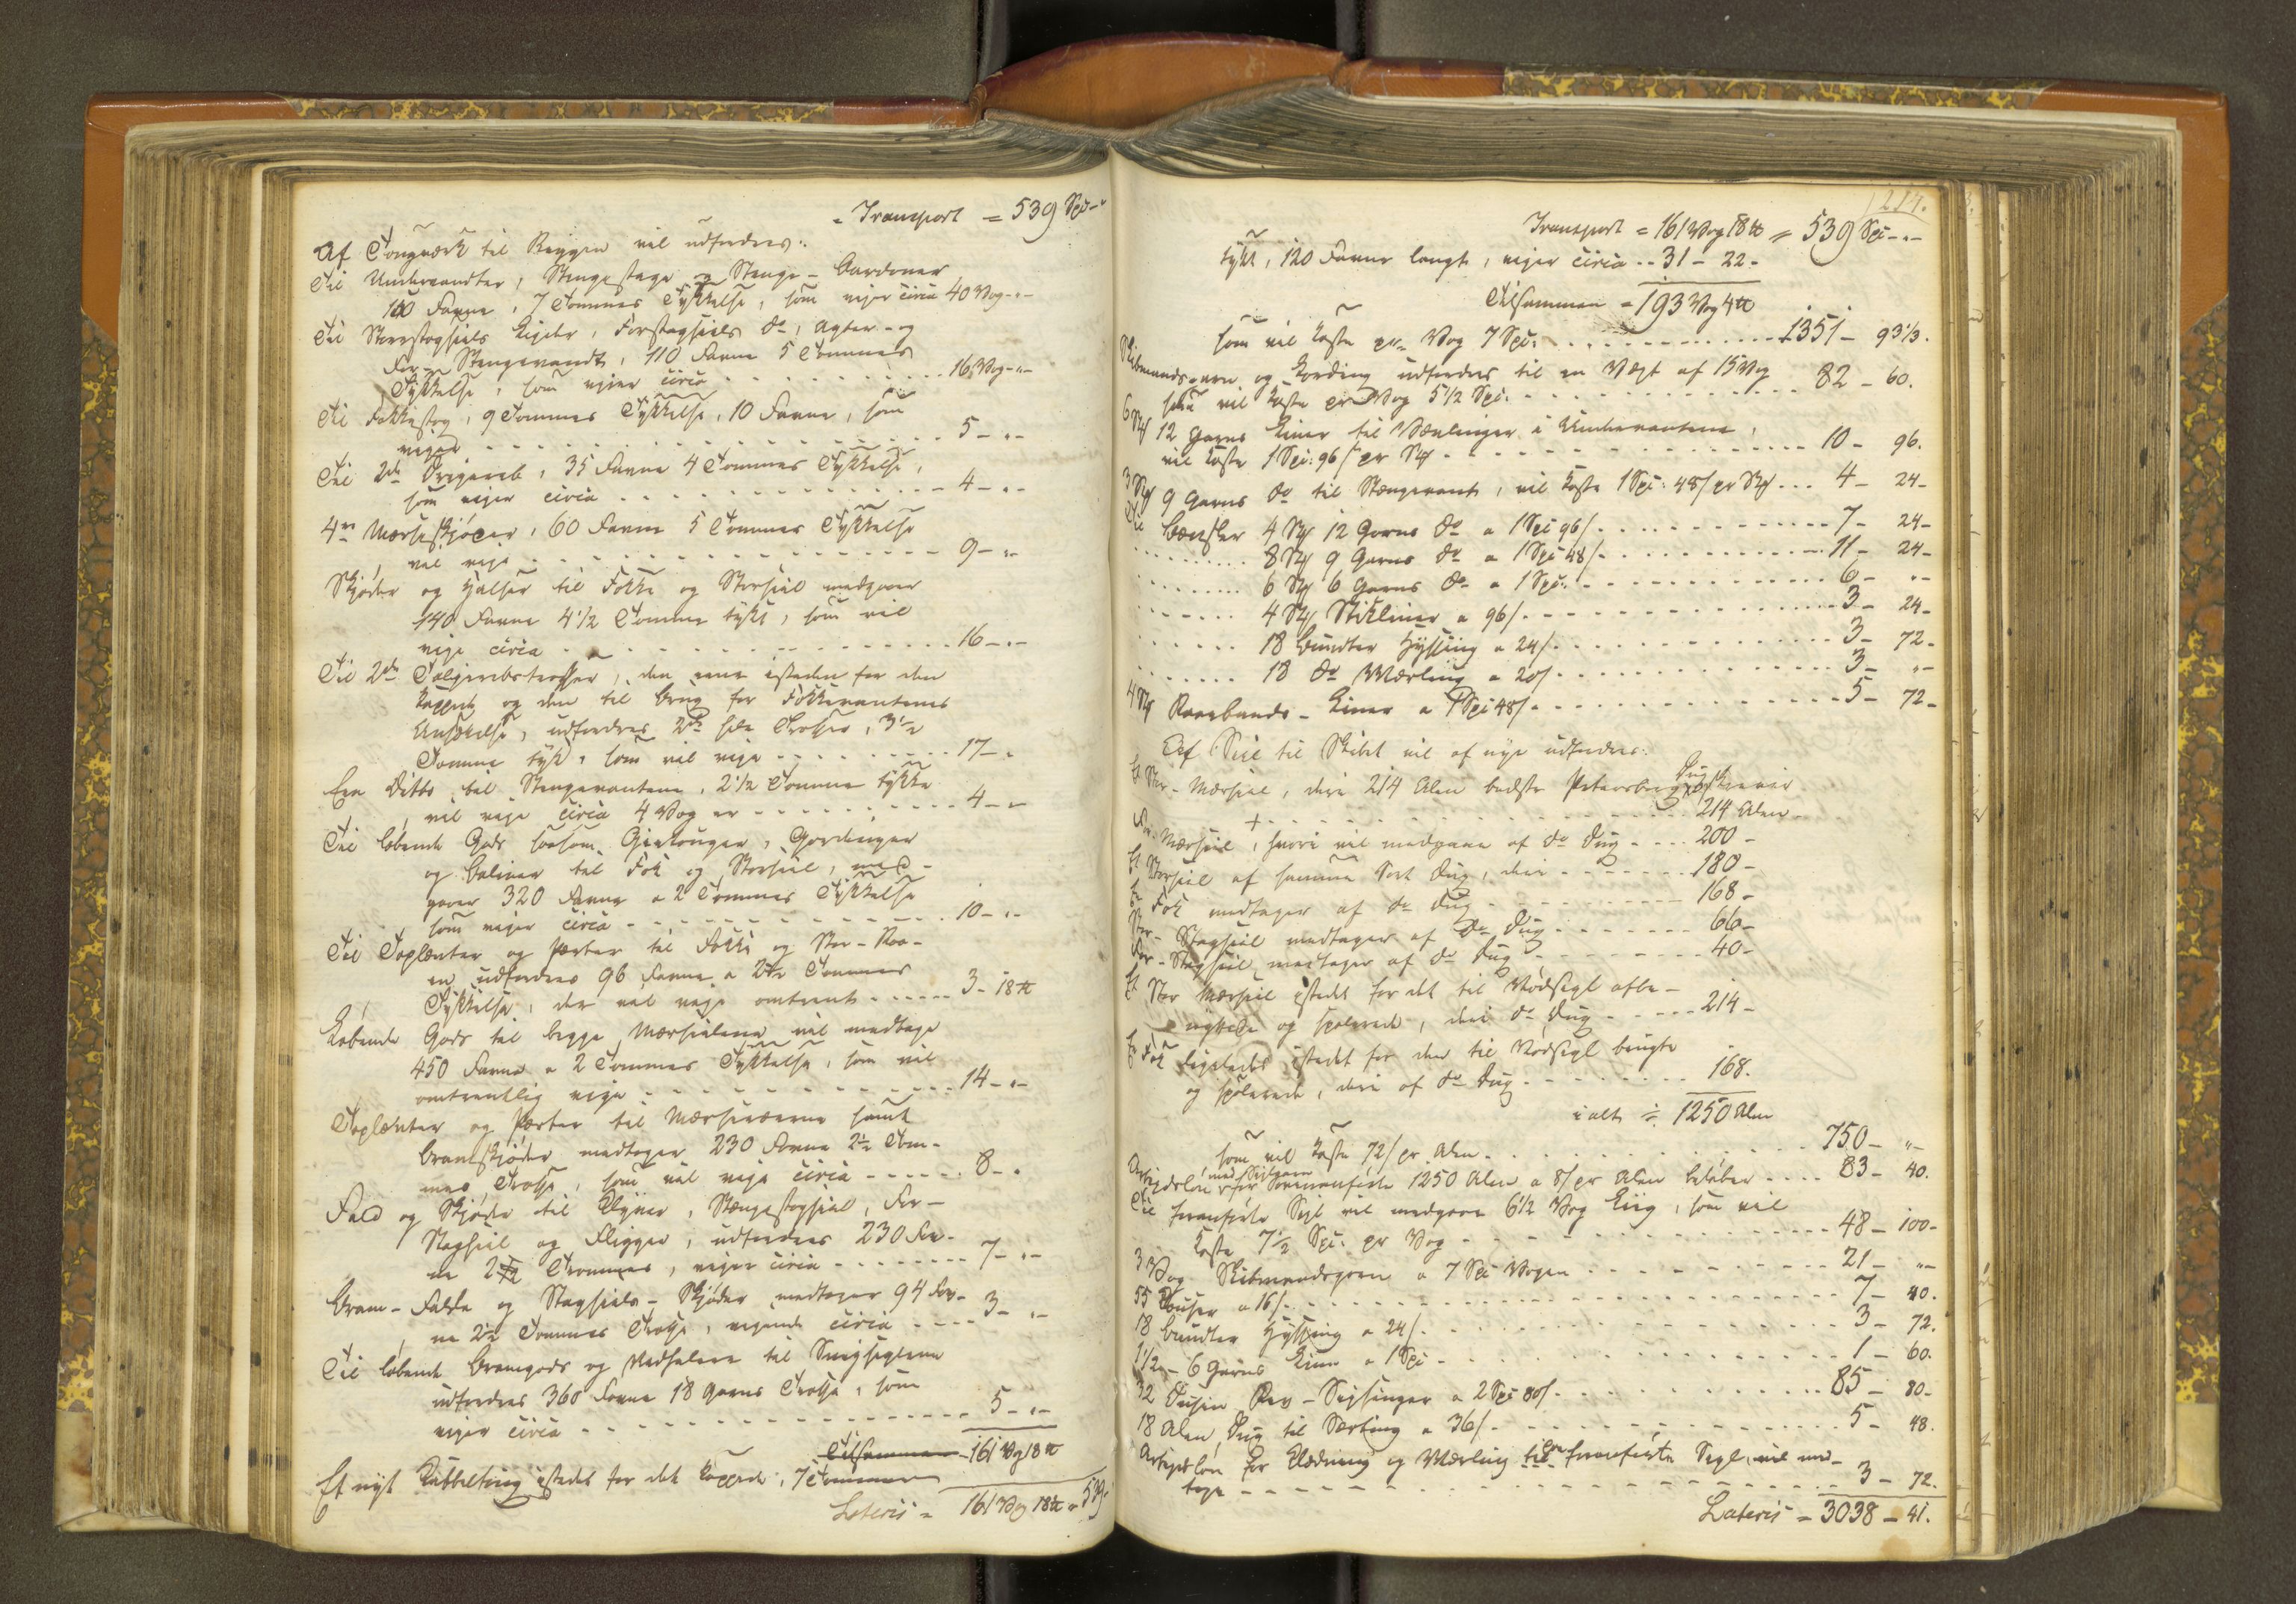 Transport = 539 Spd - "
Af Tougværk til Riggen vil udfordres:
Til Undervandter, Stengestage og Stenge-Bardoner
100 Favne, 7 Tommes Tykkelse, som vejer circa 40 Vog - "
Til Storstagseils Leider, Forstagseils do, Agter- og
For-Stengevandt, 110 Favne 5 Tommes
Tykkelse, som vejer circa 16 Vog - "
Til Fokkestag, 9 Tommes Tykkelse, 10 Favne, som
vejer 5 - "
Til 2de Drejereb, 35 Favne 4 Tommes Tykkelse,
som vejer circa 4 - "
4re Mærseskjöder, 60 Favne 5 Tommes Tykkelse
vil veje 9 - "
Skjöder og Halser til Fokke og Storseil medgaaer
140 Favne 4 1/2 Tomme tykt, som vil
veje circa 16 - "
Til 2de Taljerebstrosser, den ene istedenfor den
kappede og den til Brug for Fokkevantenes
, udfordres 2de hele Trosser, 3 1/2
Tomme tyk, som vil veje 17 - "
Een Ditto til Stengevantene, 2 1/2 Tomme tykke
vil veje circa 4 Vog er 4 - "
Til löbende Gods saasom Gietouger, Gordinger
og Boliner til Fok og Storseil, med-
gaaer 320 Favne a 2 Tommes Tykkelse
som vejer circa 10 - "
Til Toplenter og Perter til Fokke og Stor-Raa-
en udfordres 96 Favne a 2 1/2 Tommes
Tykkelse, der vil veje omtrent 3 - 18 ℔
Löbende Gods til begge Mærseilene vil medtage
450 Favne a 2 Tommes Tykkelse, som vil
omtrentlig veje 14 - "
Toplenter og Perter til Mærseræerne samt
Bramskjöder medtager 230 Favne 2 1/2 Tom-
mes Trosse, som vil veje circa 8 - "
Fald og Skjöde til Klyver, Stengestagseil, For-
Stagseil og Fligger, udfordres 230 Fav-
ne 2 1/2 Tommes, vejer circa 7 - "
Bram-Falde og Stagseils-Skjöder medtager 94 Fav-
ne 2 1/2 Tommes Trosse, vejende circa 3 - "
Til löbende Bramgods og Nedhalere til Snigseglene
udfordres 360 Favne 18 Garns Trosse, som
vejer circa 5 - "
Tilsammen 161 Vog 18 ℔
Et nyt Kabbeltoug istedet for det kappede, 7 Tommer
Lateris = 161 Vog 18 ℔ = 539 "
214.
Transport = 161 Vog 18 ℔ = 539 Spd - " -
tykt, 120 Favne langt, vejer circa 31 - 22 -
Tilsammen = 193 Vog 4 ℔
som vil koste pr Vog 7 Spd. 1351 - 93 1/3.
Skibmandsgarn og Hording udfordres til en Vægt af 15 Vog
som vil koste pr Vog 5 1/2 Spd. 82 - 60.
6 Stk 12 Garns Liner til Vævlinger i Undervantene,
vil koste 1 Spd: 96 ſ pr Stk 10 - 96.
3 Stk 9 Garns do til Stengevant, vil koste 1 Spd: 48 ſ pr Stk 4 - 24 -
Til Bensler 4 Stk 12 Garns do a 1 Spd 96 ſ 7 - 24 -
8 Stk 9 Garns do a 1 Spd 48 ſ 11 - 24 -
6 Stk 6 Garns do a 1 Spd. 6 - " -
4 Stk Stikliner a 96 ſ 3 - 24 -
18 Bundter Hyssing a 24 ſ 3 - 72 -
18 do Merling a 20 ſ 3 - " -
4 Stk Raaebands-Liner a 1 Spd 48 ſ 5 - 72 -
Af Seil til Skibet vil af nye udfordres:
Et Stor-Mærseil, deri 214 Alen bedste Petersborg Dug
214 Alen -
For-Mærseil, hvori vil medgaae af do Dug 200 -
Et Storseil af samme Sort Dug, deri 180 -
En Fok medtager af do Dug 168 -
Stor-Stagseil medtager af do Dug 66 -
For-Stagseil medtager af do Dug 40 -
Et Stor Mærseil istedet for det til Nödsegl afbe-
nyttede og spolerede, deri do Dug 214 -
En Fok ligeledes istedet for den til Nödsegl brugte
og spolerede, deri af do Dug 168.
i alt = 1250 Alen
som vil koste 72 ſ pr Alen 750 - "
Arbejdslön med Seilgarn for forannförte 1250 Alen a 8 ſ pr Alen belöber 83 - 40.
Til forannförte Seil vil medgaae 6 1/2 Vog Liig, som vil
koste 7 1/2 Spd. pr Vog 48 - 100 -
3 Vog Skibmandsgarn a 7 Spd Vogen 21 - " -
55 Kouser a 16 ſ 7 - 40.
18 Bundter Hyssing a 24 ſ 3 - 72.
1 1/2 - 6 Garns Line a 1 Spd 1 - 60.
32 Dusin Rev-Sejsinger a 2 Spd 80 ſ 85 - 80 -
18 Alen Dug til Særting a 36 ſ 5 - 48.
Arbejdslön for Klædning og Merling til forannförte Segl, vil med-
tage 3 - 72.
Lateris = 3038 - 41.